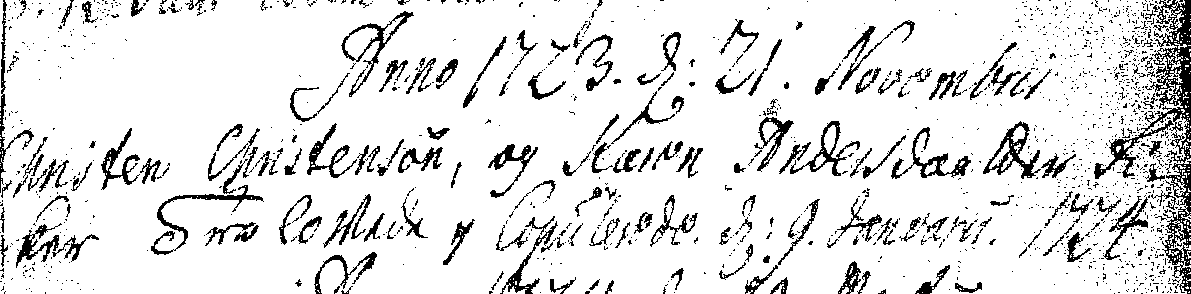 Anno 1723. d: 21. Novembris
Christen Christensøn, og Karen Andersdaatter
Trolovede og Copulerede. d: 9. Januarii. 1724.